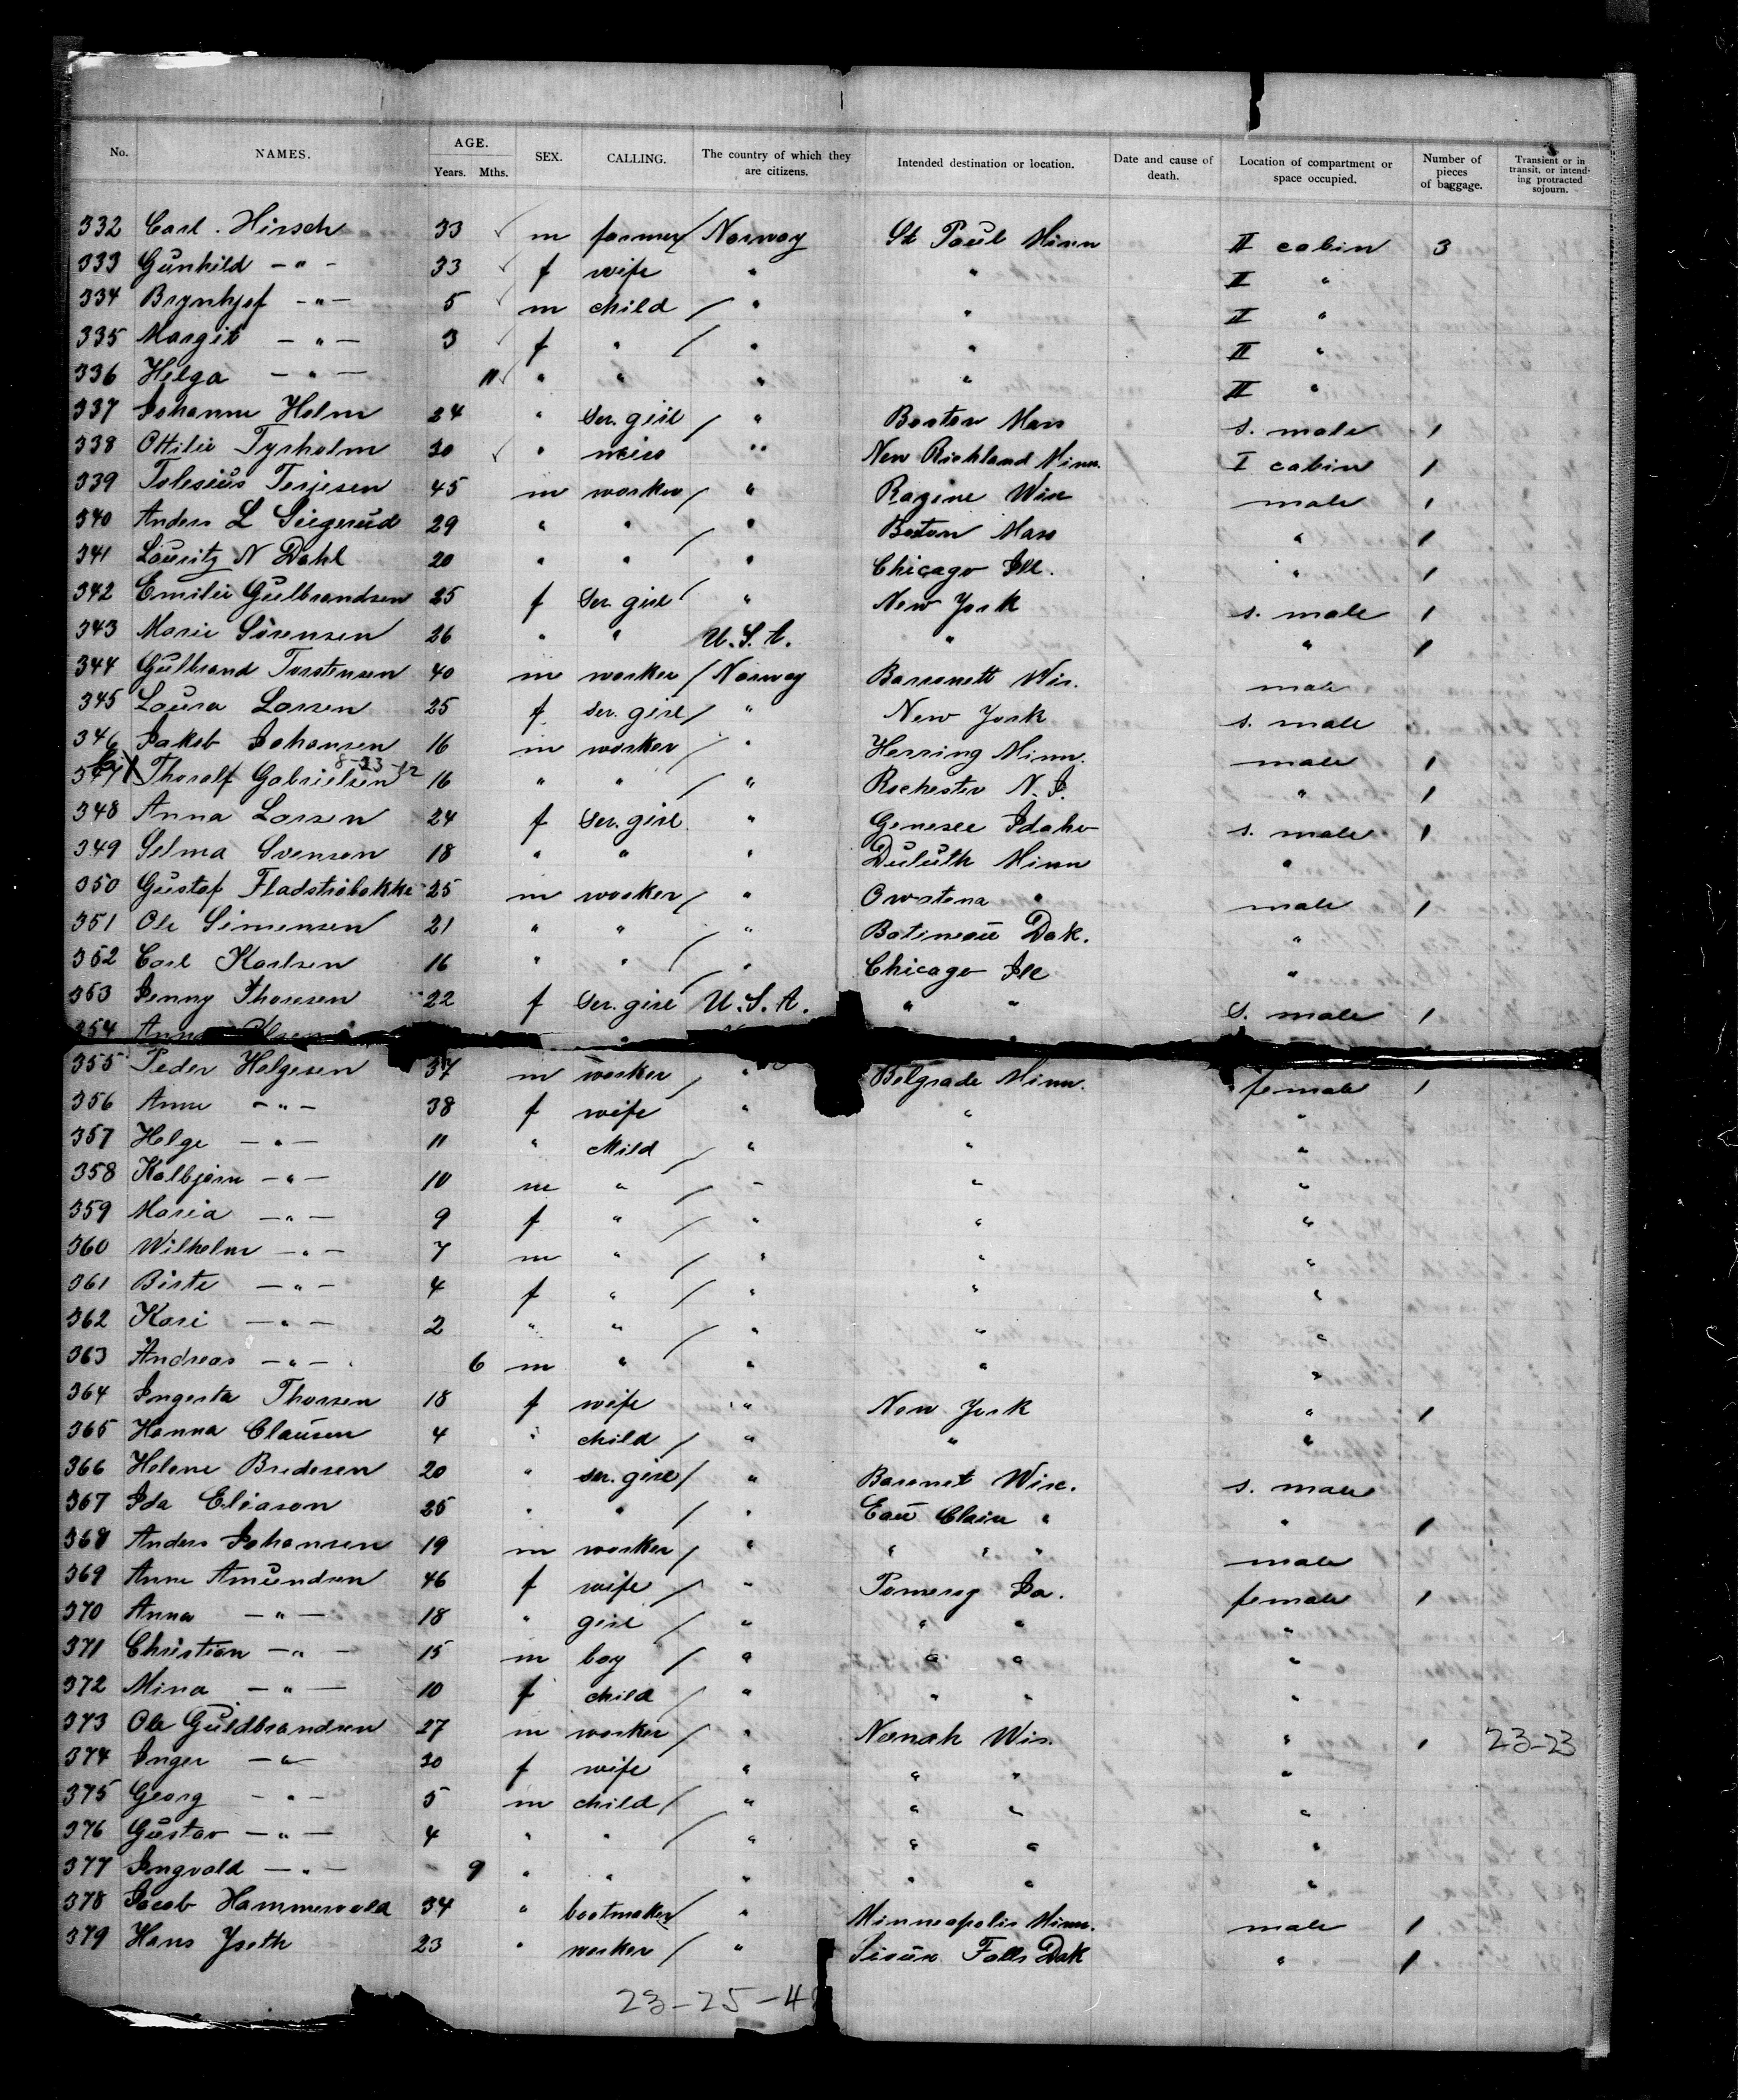 No. NAMES. AGE. Years. Mths. SEX. CALLING. The country of which they are citizens. Intended destination or location. Date and cause of death. Location of compartment or space occupied. Number of pieces of baggage. Transient or in transit, or intending protracted sojourn.
332 Carl Hirsch 33 m farmer / Norway St Paul Minn II cabin 3
333 Gunhild — " — 33 f wife " " II "
334 Brynhjof — " — 5 m child / " " II "
335 Margit — " — 3 f " / " " II "
336 Helga — " — 11 " " " " II "
337 Johanne Holm 24 " ser. girl / " Boston Mass s. male 1
338 Ottilie Tyrholm 30 " miss " New Richland Minn. I cabin 1
339 Tolesius Terjesen 45 m worker / " Ragine Wise male 1
340 Anders L Siegerud 29 " " / " Boston Mass " 1
341 Lauritz N Dahl 20 " " " Chicago Ill. " 1
342 Emilie Gulbrandsen 25 f ser. girl / " New York s. male 1
343 Marie Sørensen 26 " " U.S.A. " " 1
344 Gulbrand Torstensen 40 m worker / Norway Barronett Wis. male
345 Laura Larsen 25 f ser. girl / " New York s. male
346 Jakob Johansen 16 m worker / " Herring Minn. male 1
8-23-
347 Thoralf Gabrielsen 16 " " / " Rochester N. J. " 1
348 Anna Larsen 24 f ser. girl " Genesee Idaho s. male 1
349 Selma Svensen 18 " " " Duluth Minn "
350 Gustaf Fladstrøbakke 25 m worker / " Owatona " male 1
351 Ole Simensen 21 " " " Batineau Dak. "
352 Carl Karlsen 16 " " / " Chicago Ill "
353 Jenny Thoresen 22 f ser. girl U.S.A. " " s. male 1
354 Anna Olsen
355 Peder Helgesen 37 m worker / " Belgrade Minn. female 1
356 Anne — " — 38 f wife " " "
357 Helge — " — 11 " child / " " "
358 Kolbjørn — " — 10 m " / " " "
359 Maria — " — 9 f " / " " "
360 Wilhelm — " — 7 m " / " " "
361 Birte — " — 4 f " / " " "
362 Kari — " — 2 " " / " " "
363 Andreas — " — 6 m " " " "
364 Ingerta Thorsen 18 f wife " New York " 1
365 Hanna Clausen 4 " child / " " "
366 Helene Bredesen 20 " ser. girl / " Baronet Wisc. s. male
367 Ida Eliason 25 " " / " Eau Claire " " 1
368 Anders Johansen 19 m worker / " " " " male
369 Anne Amundsen 46 f wife / " Pomeroy Ia. female 1
370 Anna — " — 18 " girl " " " "
371 Christian — " — 15 m boy / " " " "
372 Mina — " — 10 f child / " " " "
373 Ole Guldbrandsen 27 m worker / " Nænah Wis. " 1 23-23
374 Inger — " — 30 f wife " " " "
375 Georg — " — 5 m child / " " " "
376 Gustav — " — 4 " " / " " " "
377 Ingvald — " — 9 " " " " " "
378 Jacob Hammervold 34 " bootmaker / " Minneapolis Minn. male 1
379 Hans Yseth 23 " worker / " Sioux Falls Dak " 1
23-25-4